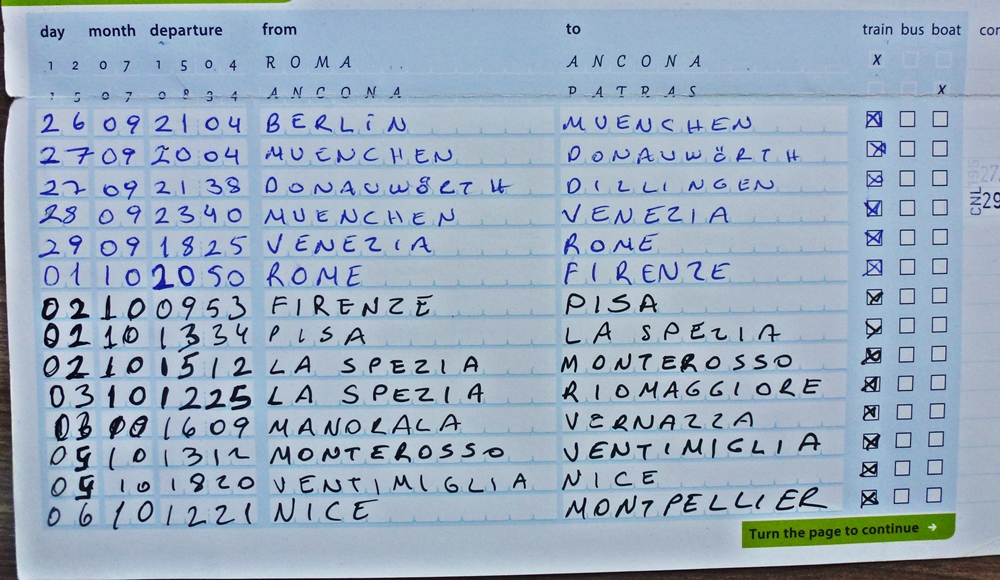 day month departure from to train bus boat
1 2 0 7 1 5 0 4 ROMA ANCONA X
1 5 0 7 0 8 3 4 ANCONA PATRAS X
26 09 21 04 BERLIN MUENCHEN
27 09 20 04 MUENCHEN DONAUWÖRTH
27 09 21 38 DONAUWÖRTH DILLINGEN
28 09 23 40 MUENCHEN VENEZIA
29 09 18 25 VENEZIA ROME
01 10 20 50 ROME FIRENZE
02 10 09 53 FIRENZE PISA
02 10 13 34 PISA LA SPEZIA
02 10 15 12 LA SPEZIA MONTEROSSO
03 10 12 25 LA SPEZIA RIOMAGGIORE
03 16 09 MANORALA VERNAZZA
05 10 13 12 MONTEROSSO VENTIMIGLIA
05 10 18 20 VENTIMIGLIA NICE
06 10 12 21 NICE MONTPELLIER
Turn the page to continue →